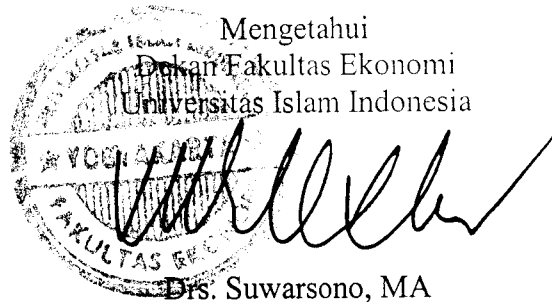 Mengetahui
Dekan Fakultas Ekonomi
Universitas Islam Indonesia
YOGYAKARTA
FAKULTAS
Drs. Suwarsono, MA